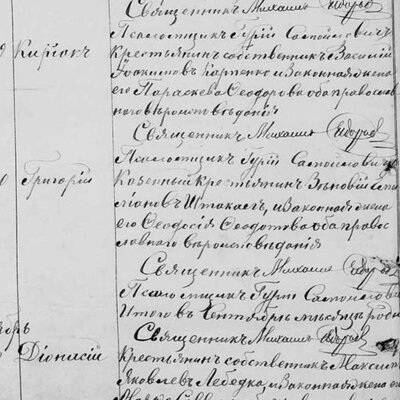 Священникъ Михаилъ
Псаломщикъ Гурій Самойловичъ
Кирьякъ
крестьянинъ собственникъ Василій
Іоакимовъ Карпенко и законная жена
его Параскева Ѳеодорова оба православ
наго вѣроисповѣданія
Священникъ Михаилъ
Псаломщикъ Гурій Самойлович
Григорій
Казенный крестьянинъ Зѣновій
Штакаетъ, и законная жена
его Ѳеодосія Ѳеодотова оба правос
лавнаго вѣроисповѣданія
Священникъ Михаилъ
Псаломщикъ Гурій Самойлови
Итого въ Сентябрѣ мѣсяцѣ роди
Священникъ Михаилъ
Діонисій
крестьянинъ собственникъ Максим
Яковлевъ Лебедка, и законная жена ег